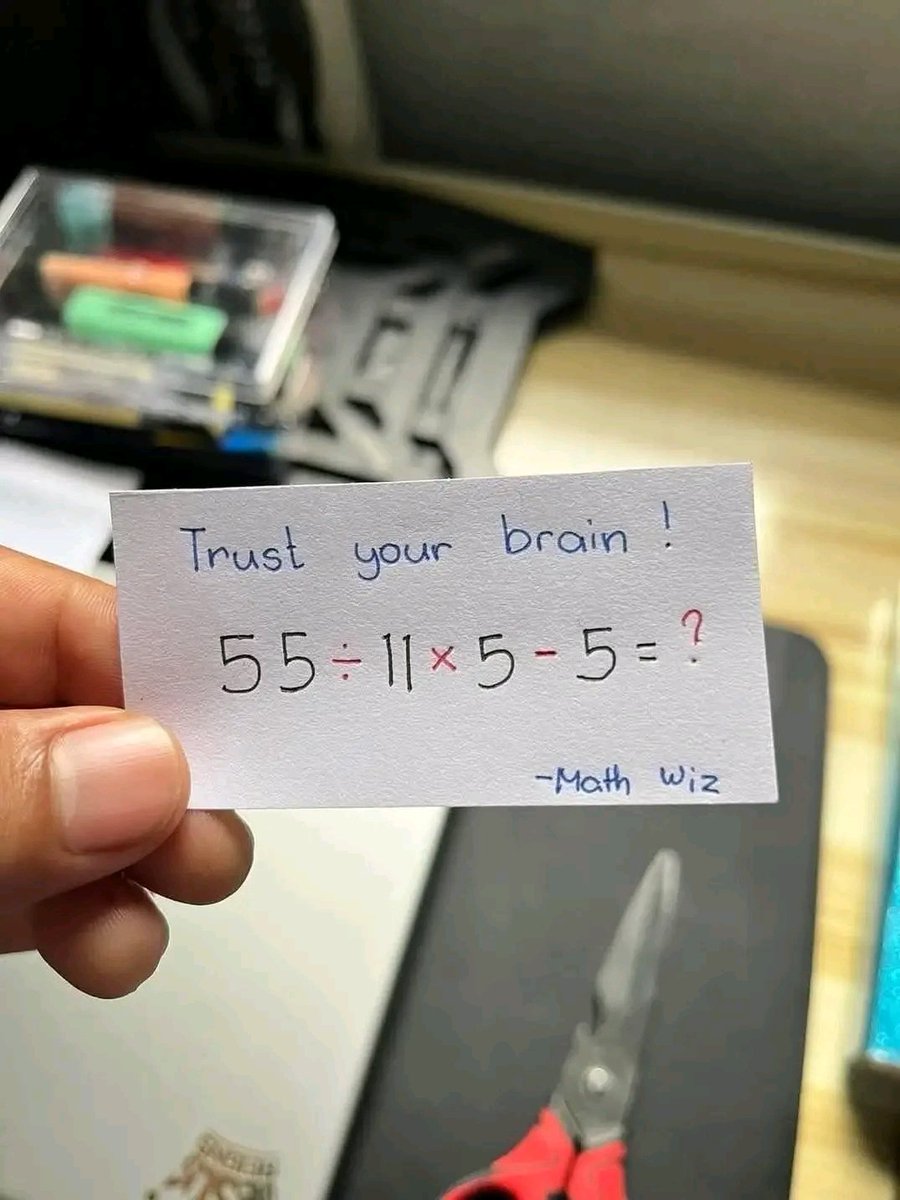 Trust your brain !
55÷11×5-5=?
-Math Wiz